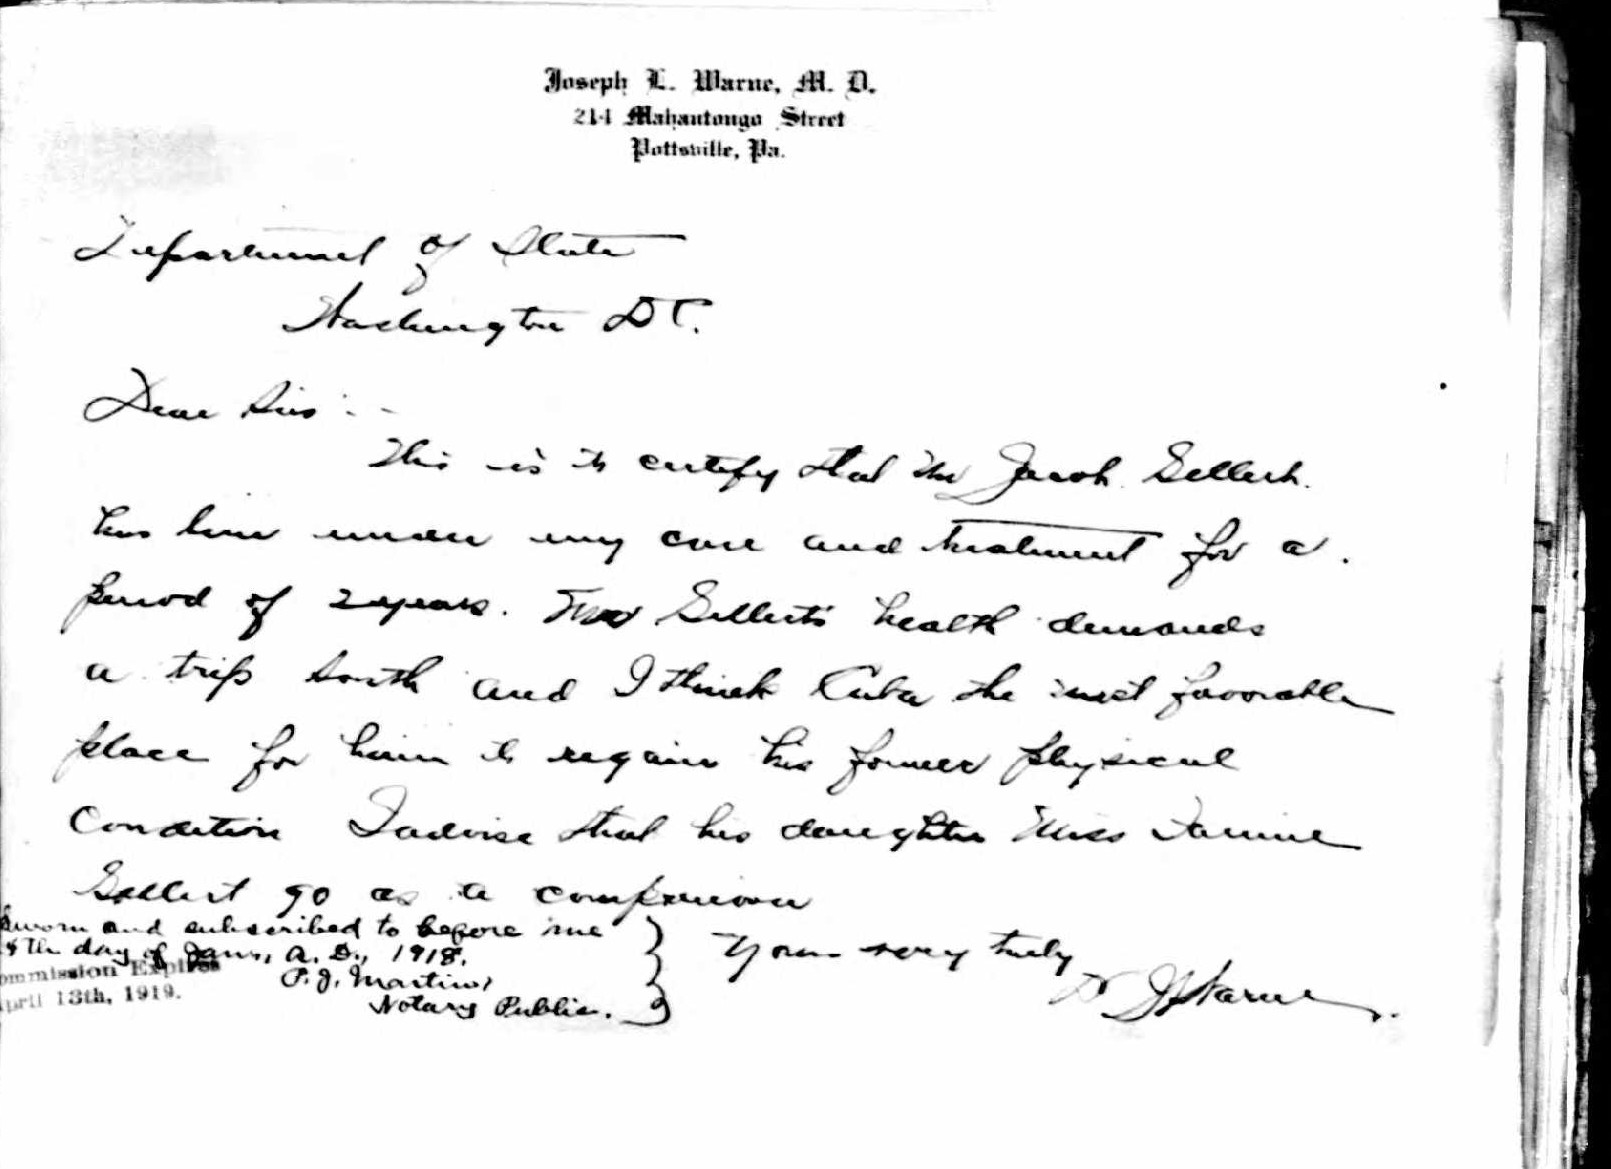 Joseph L. Warne, M. D.
214 Mahantongo Street
Pottsville, Pa.
Department of State
Washington D C.
Dear Sirs :--
This is to certify that Mr Jacob Gellert.
has been under my care and treatment for a.
period of 2 years. Mr Gellert's health demands
a trip South and I think Cuba the most favorable
place for him to regain his former physical
Condition I advise that his daughter Miss Fannie
Gellert go as a companion
Sworn and subscribed to before me
8th day of Jany, A. D., 1918.
ommission Expires
P. J. Martin,
pril 13th, 1919.
Notary Public.
Yours very truly
J L Warne